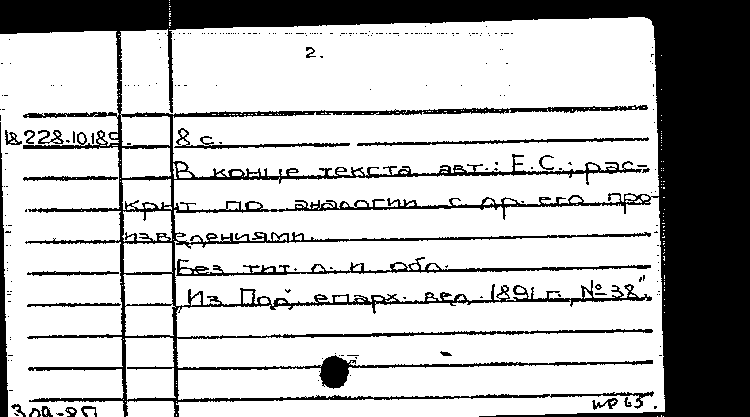 2.
18.228.10.189. 8 с.
В конце текста авт.: Е.С.; рас-
крыт по аналогии с др. его про
изведениями.
Без тит. л. и обл.
"Из Под. епарх. вед. 1891 г., № 38".